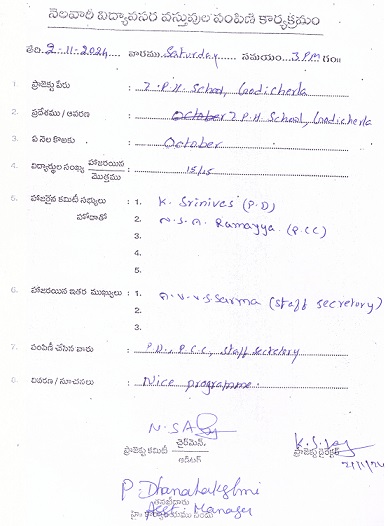 నెలవారీ విద్యావసర వస్తువుల పంపిణీ కార్యక్రమం
తేది: 2-11-2024 వారము Saturday సమయం 3 P.M గం॥
1. ప్రాజెక్టు పేరు : Z.P.H. School, Goodicherla
2. ప్రదేశము / ఆవరణ : October Z P.H School, Goodicherla
3. ఏ నెల కొఱకు : October
4. విద్యార్థుల సంఖ్య హాజరయిన / మొత్తము : 15/15
5. హాజరైన కమిటీ సభ్యులు : 1. K. Srinives (P.D)
హోదాతో 2. N.S.A. Ramayya. (P.CC)
3.
4.
5.
6. హాజరయిన ఇతర ముఖ్యులు : 1. A.V.V.S Sarma (Staff Secretory)
2.
3.
7. పంపిణీ చేసిన వారు : P.D., P.C.C, Staff Secretory
8. వివరణ / సూచనలు : Nice programme.
N.SA
ప్రాజెక్టు కమిటీ చైర్‌మెన్
ఆడిటర్
ప్రాజెక్టు డైరెక్టర్
P. Dhanalakshmi
Asst. Manager